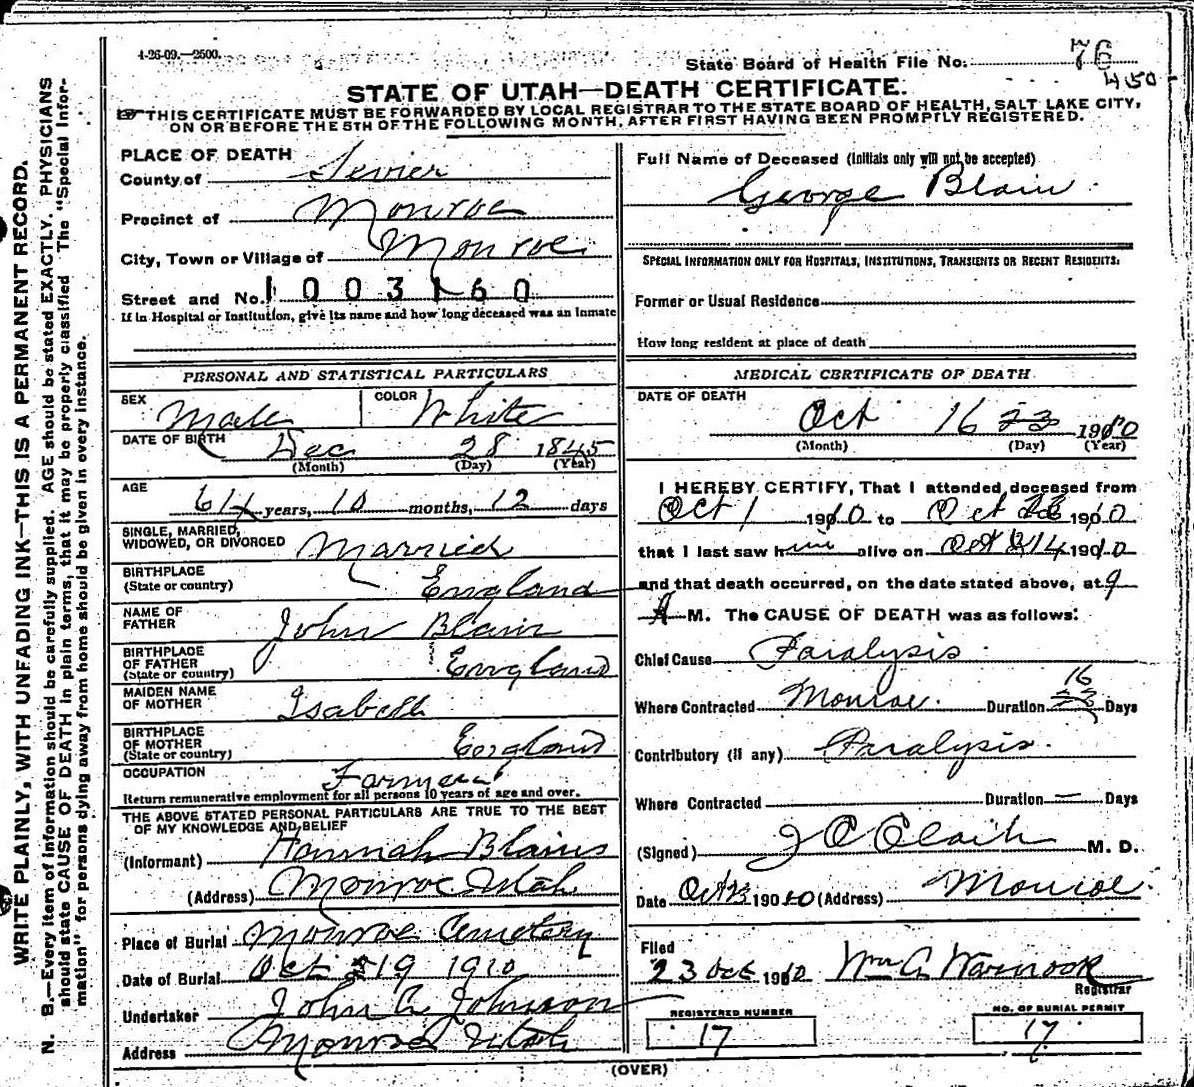 4-26-09.—2500.
State Board of Health File No. 76
450
STATE OF UTAH—DEATH CERTIFICATE.
THIS CERTIFICATE MUST BE FORWARDED BY LOCAL REGISTRAR TO THE STATE BOARD OF HEALTH, SALT LAKE CITY,
ON OR BEFORE THE 5TH OF THE FOLLOWING MONTH, AFTER FIRST HAVING BEEN PROMPTLY REGISTERED.
WRITE PLAINLY, WITH UNFADING INK—THIS IS A PERMANENT RECORD.
N. B.—Every item of information should be carefully supplied. AGE should be stated EXACTLY. PHYSICIANS
should state CAUSE OF DEATH in plain terms, that it may be properly classified The "Special Infor-
mation" for persons dying away from home should be given in every instance.
PLACE OF DEATH
County of Sevier
Precinct of Monroe
City, Town or Village of Monroe
Street and No. 1003160
If in Hospital or Institution, give its name and how long deceased was an inmate
PERSONAL AND STATISTICAL PARTICULARS
SEX Male COLOR White
DATE OF BIRTH Dec 28 1845
(Month) (Day) (Year)
AGE
64 years, 10 months, 12 days
SINGLE, MARRIED,
WIDOWED, OR DIVORCED Married
BIRTHPLACE
(State or country) England
NAME OF
FATHER John Blain
BIRTHPLACE
OF FATHER
(State or country) England
MAIDEN NAME
OF MOTHER Isabell
BIRTHPLACE
OF MOTHER
(State or country) England
OCCUPATION Farmer
Return remunerative employment for all persons 10 years of age and over.
THE ABOVE STATED PERSONAL PARTICULARS ARE TRUE TO THE BEST
OF MY KNOWLEDGE AND BELIEF
(Informant) Hannah Blain
(Address) Monroe Utah
Place of Burial Monroe Cemetery
Date of Burial Oct 19 1910
Undertaker John C Johnson
Address Monroe Utah
Full Name of Deceased (Initials only will not be accepted)
George Blain
SPECIAL INFORMATION ONLY FOR HOSPITALS, INSTITUTIONS, TRANSIENTS OR RECENT RESIDENTS.
Former or Usual Residence
How long resident at place of death
MEDICAL CERTIFICATE OF DEATH
DATE OF DEATH
Oct 16 23 1910
(Month) (Day) (Year)
I HEREBY CERTIFY, That I attended deceased from
Oct 1 1910 to Oct 1910
that I last saw him alive on Oct 14 1910
and that death occurred, on the date stated above, at 9
A M. The CAUSE OF DEATH was as follows:
Chief Cause Paralysis
16
Where Contracted Monroe. Duration 23 Days
Contributory (if any) Paralysis.
Where Contracted Duration — Days
(Signed) J C M. D.
Date Oct 23 1910 (Address) Monroe.
Filed
23 Oct 1910 Wm A Warnock
Registrar
REGISTERED NUMBER
17
NO. OF BURIAL PERMIT
17
(OVER)